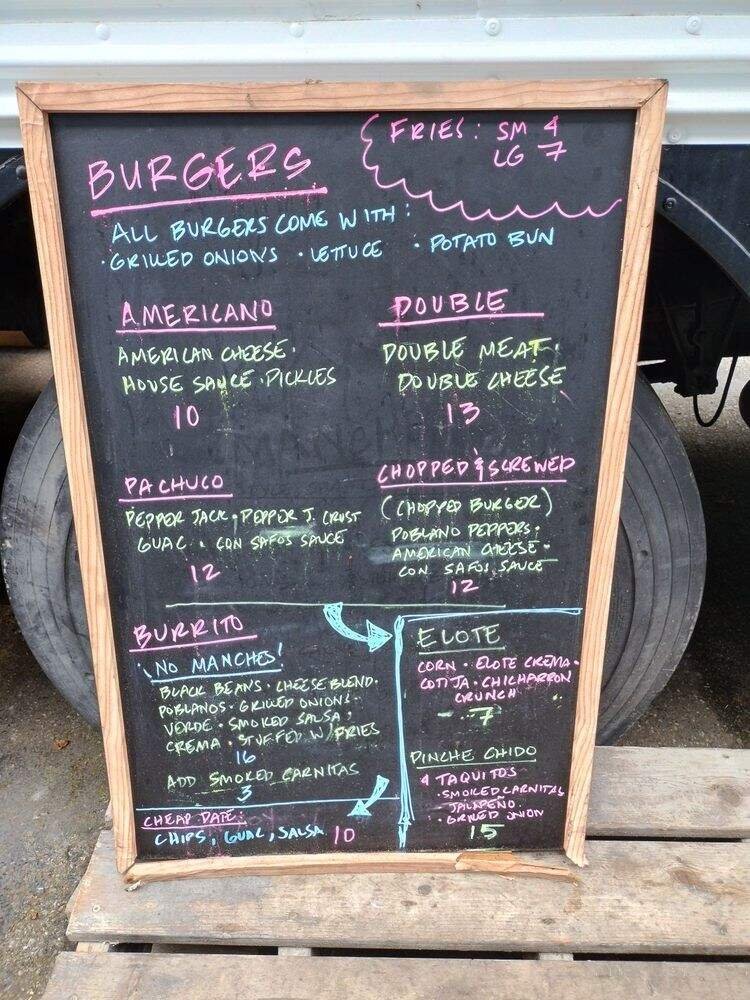 FRIES: SM 4
LG 7
BURGERS
ALL BURGERS COME WITH:
• GRILLED ONIONS • LETTUCE • POTATO BUN
AMERICANO
AMERICAN CHEESE •
HOUSE SAUCE • PICKLES
10
DOUBLE
DOUBLE MEAT •
DOUBLE CHEESE
13
PACHUCO
PEPPER JACK • PEPPER J. CRUST
GUAC • CON SAFOS SAUCE
12
CHOPPED & SCREWED
(CHOPPED BURGER)
POBLANO PEPPERS •
AMERICAN CHEESE •
CON SAFOS SAUCE
12
BURRITO
¡NO MANCHES!
BLACK BEANS • CHEESE BLEND •
POBLANOS • GRILLED ONIONS •
VERDE • SMOKED SALSA •
CREMA • STUFFED W/ FRIES
16
ADD SMOKED CARNITAS
3
CHEAP DATE:
CHIPS, GUAC, SALSA 10
ELOTE
CORN • ELOTE CREMA •
COTIJA • CHICHARRON
CRUNCH
7
PINCHE CHIDO
4 TAQUITOS
• SMOKED CARNITAS
JALAPEÑO •
• GRILLED ONION
15